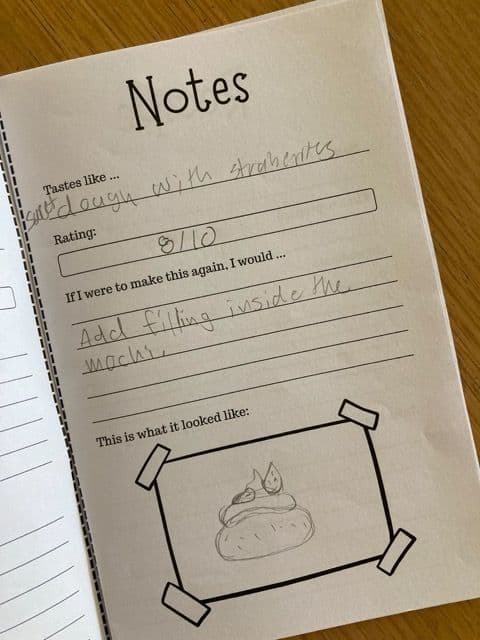 Notes
Tastes like ...
sweet dough with straberries
Rating:
8/10
If I were to make this again, I would ...
Add filling inside the
mochi.
This is what it looked like: